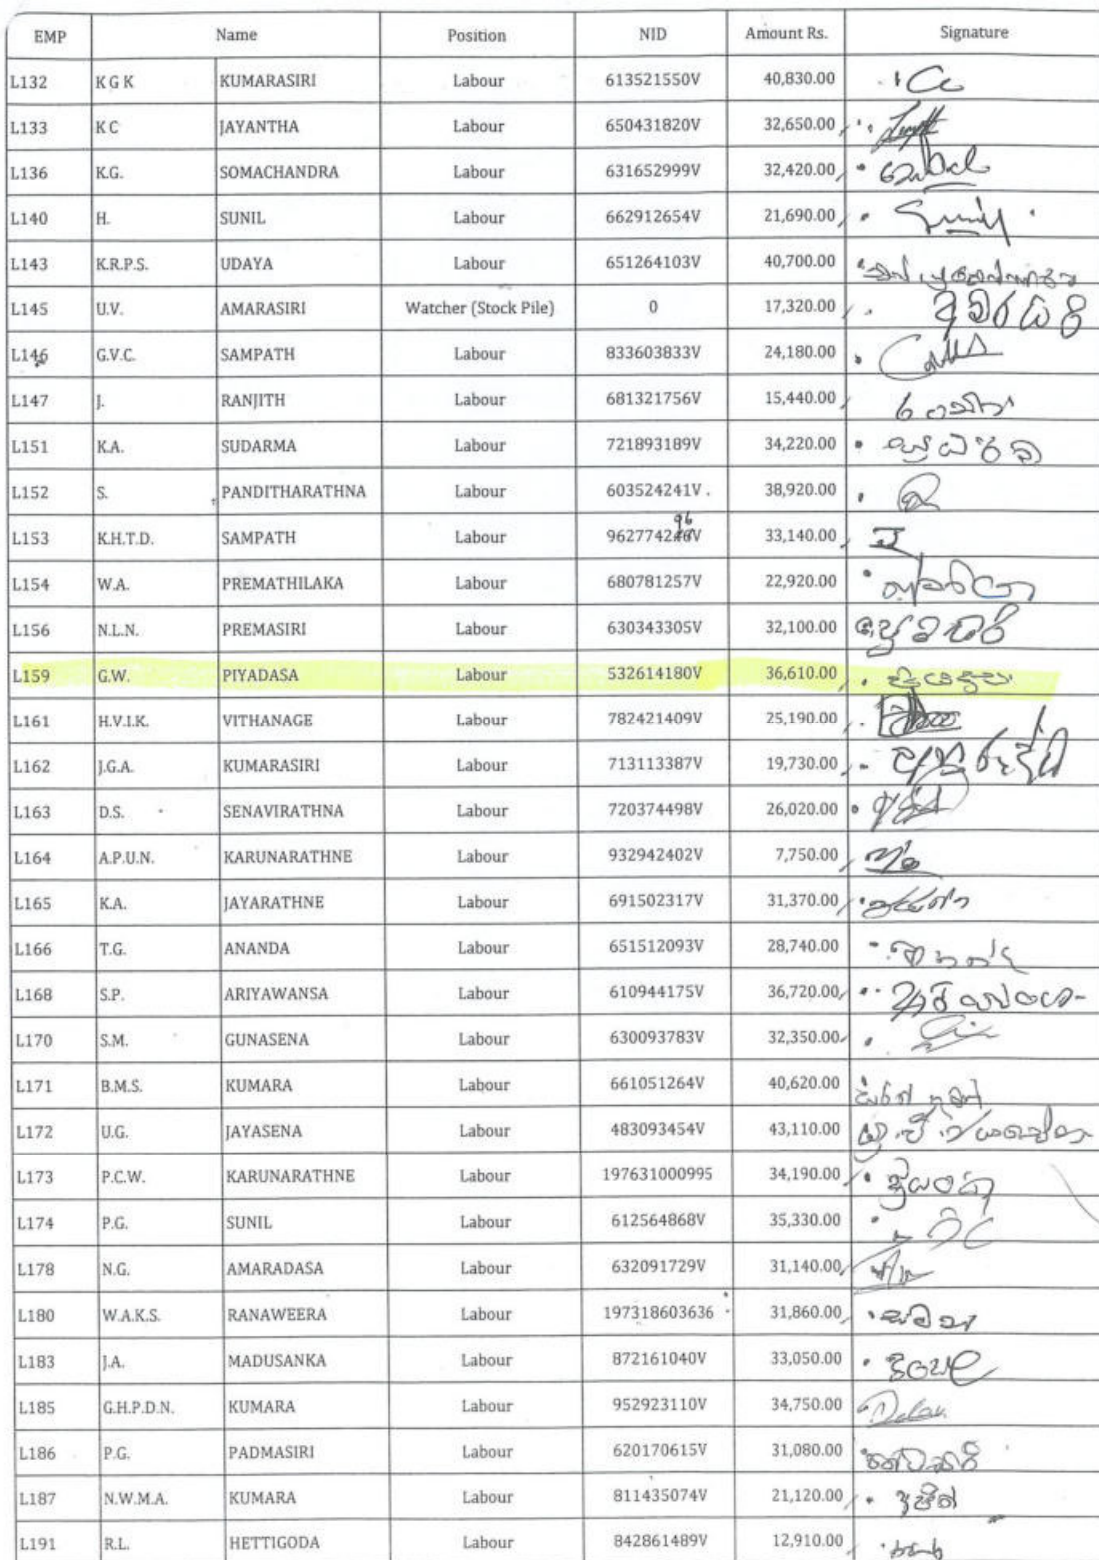 EMP Name Position NID Amount Rs. Signature
L132 K G K KUMARASIRI Labour 613521550V 40,830.00
L133 K C JAYANTHA Labour 650431820V 32,650.00
L136 K.G. SOMACHANDRA Labour 631652999V 32,420.00
L140 H. SUNIL Labour 662912654V 21,690.00 Sunil
L143 K.R.P.S. UDAYA Labour 651264103V 40,700.00
L145 U.V. AMARASIRI Watcher (Stock Pile) 0 17,320.00 අමරසිරි
L146 G.V.C. SAMPATH Labour 833603833V 24,180.00
L147 J. RANJITH Labour 681321756V 15,440.00
L151 K.A. SUDARMA Labour 721893189V 34,220.00 සුධර්මා
L152 S. PANDITHARATHNA Labour 603524241V. 38,920.00
96
L153 K.H.T.D. SAMPATH Labour 33,140.00
L154 W.A. PREMATHILAKA Labour 680781257V 22,920.00
L156 N.L.N. PREMASIRI Labour 630343305V 32,100.00 ප්‍රේමසිරි
L159 G.W. PIYADASA Labour 532614180V 36,610.00 පියදාස
L161 H.V.I.K. VITHANAGE Labour 782421409V 25,190.00
L162 J.G.A. KUMARASIRI Labour 713113387V 19,730.00
L163 D.S. SENAVIRATHNA Labour 720374498V 26,020.00
L164 A.P.U.N. KARUNARATHNE Labour 932942402V 7,750.00
L165 K.A. JAYARATHNE Labour 691502317V 31,370.00
L166 T.G. ANANDA Labour 651512093V 28,740.00 ආනන්ද
L168 S.P. ARIYAWANSA Labour 610944175V 36,720.00
L170 S.M. GUNASENA Labour 630093783V 32,350.00
L171 B.M.S. KUMARA Labour 661051264V 40,620.00
L172 U.G. JAYASENA Labour 483093454V 43,110.00
L173 P.C.W. KARUNARATHNE Labour 197631000995 34,190.00
L174 P.G. SUNIL Labour 612564868V 35,330.00
L178 N.G. AMARADASA Labour 632091729V 31,140.00
L180 W.A.K.S. RANAWEERA Labour 197318603636 31,860.00
L183 J.A. MADUSANKA Labour 872161040V 33,050.00
L185 G.H.P.D.N. KUMARA Labour 952923110V 34,750.00
L186 P.G. PADMASIRI Labour 620170615V 31,080.00
L187 N.W.M.A. KUMARA Labour 811435074V 21,120.00
L191 R.L. HETTIGODA Labour 842861489V 12,910.00